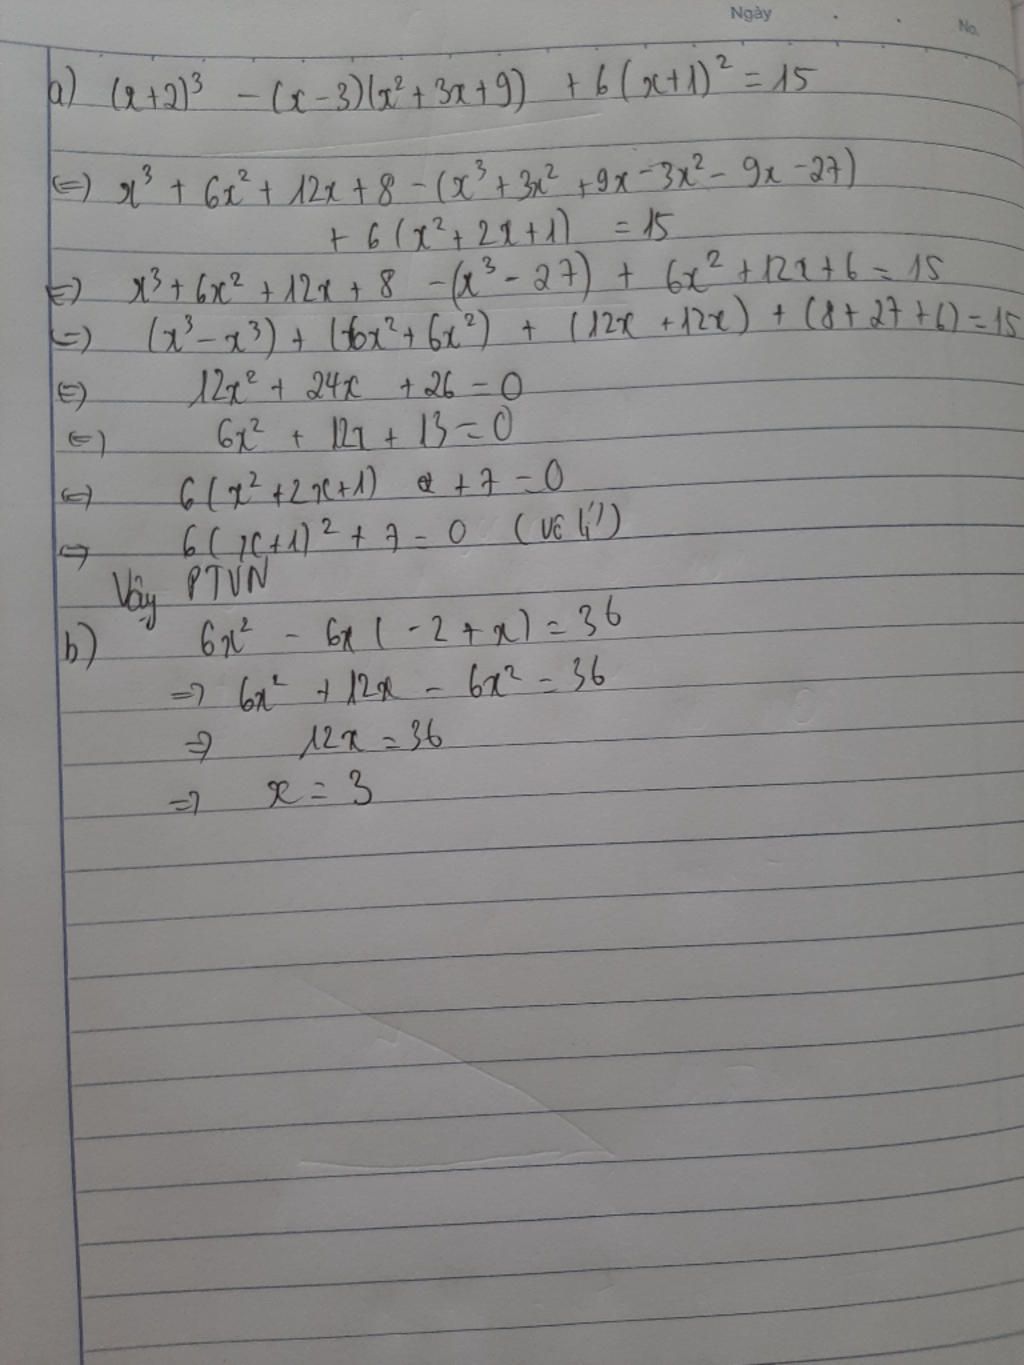 Ngày
No.
a) (x+2)³ - (x-3)(x²+3x+9) + 6(x+1)² = 15
<=> x³ + 6x² + 12x + 8 - (x³ + 3x² + 9x - 3x² - 9x - 27)
+ 6(x² + 2x + 1) = 15
<=> x³ + 6x² + 12x + 8 - (x³ - 27) + 6x² + 12x + 6 = 15
<=> (x³ - x³) + (6x² + 6x²) + (12x + 12x) + (8 + 27 + 6) = 15
<=> 12x² + 24x + 26 = 0
<=> 6x² + 12x + 13 = 0
<=> 6(x² + 2x + 1) + 7 = 0
<=> 6(x+1)² + 7 = 0 (vô lí)
Vậy PTVN
b) 6x² - 6x(-2 + x) = 36
=> 6x² + 12x - 6x² = 36
=> 12x = 36
=> x = 3